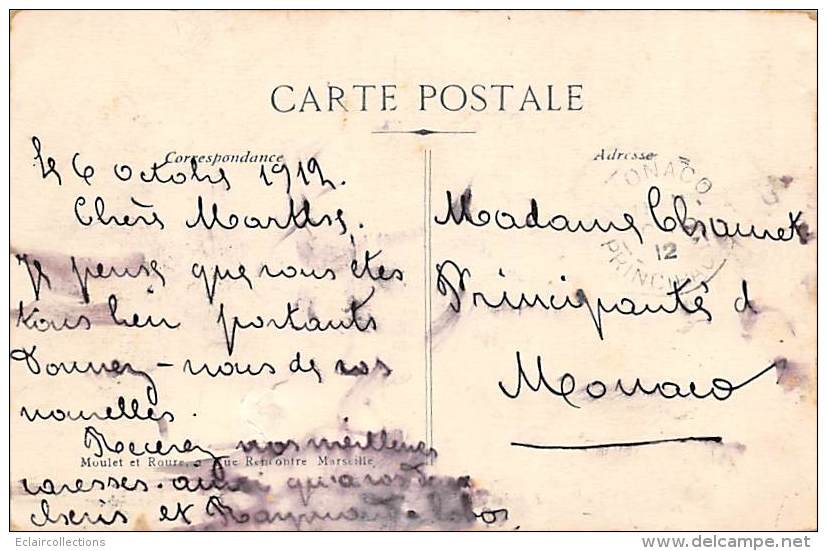 CARTE POSTALE
Correspondance
Le 6 Octobre 1912.
Chère Marthe,
Je pense que vous êtes
tous bien portants
Donnez-nous de vos
nouvelles.
Recevez nos meilleures
caresses. ainsi qu'a vos
et
Moulet et Roure, Rue Rencontre Marseille
Adresse
MONACO
12
PRINCIPAUTÉ
Madame
Principauté d
Monaco
Eclaircollections
delcampe.net